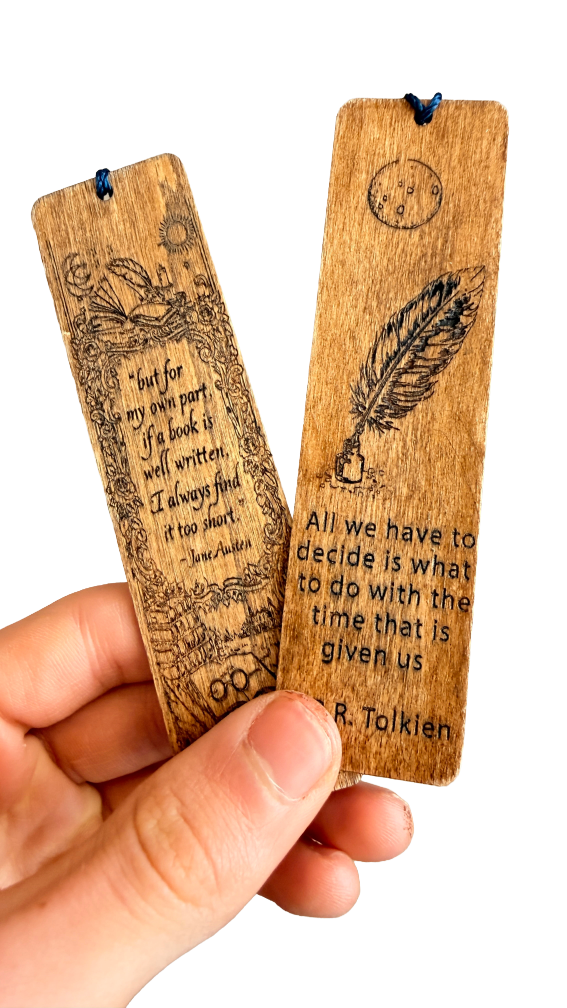 "but for
my own part,
if a book is
well written,
I always find
it too short."
- Jane Austen
All we have to
decide is what
to do with the
time that is
given us
R. Tolkien